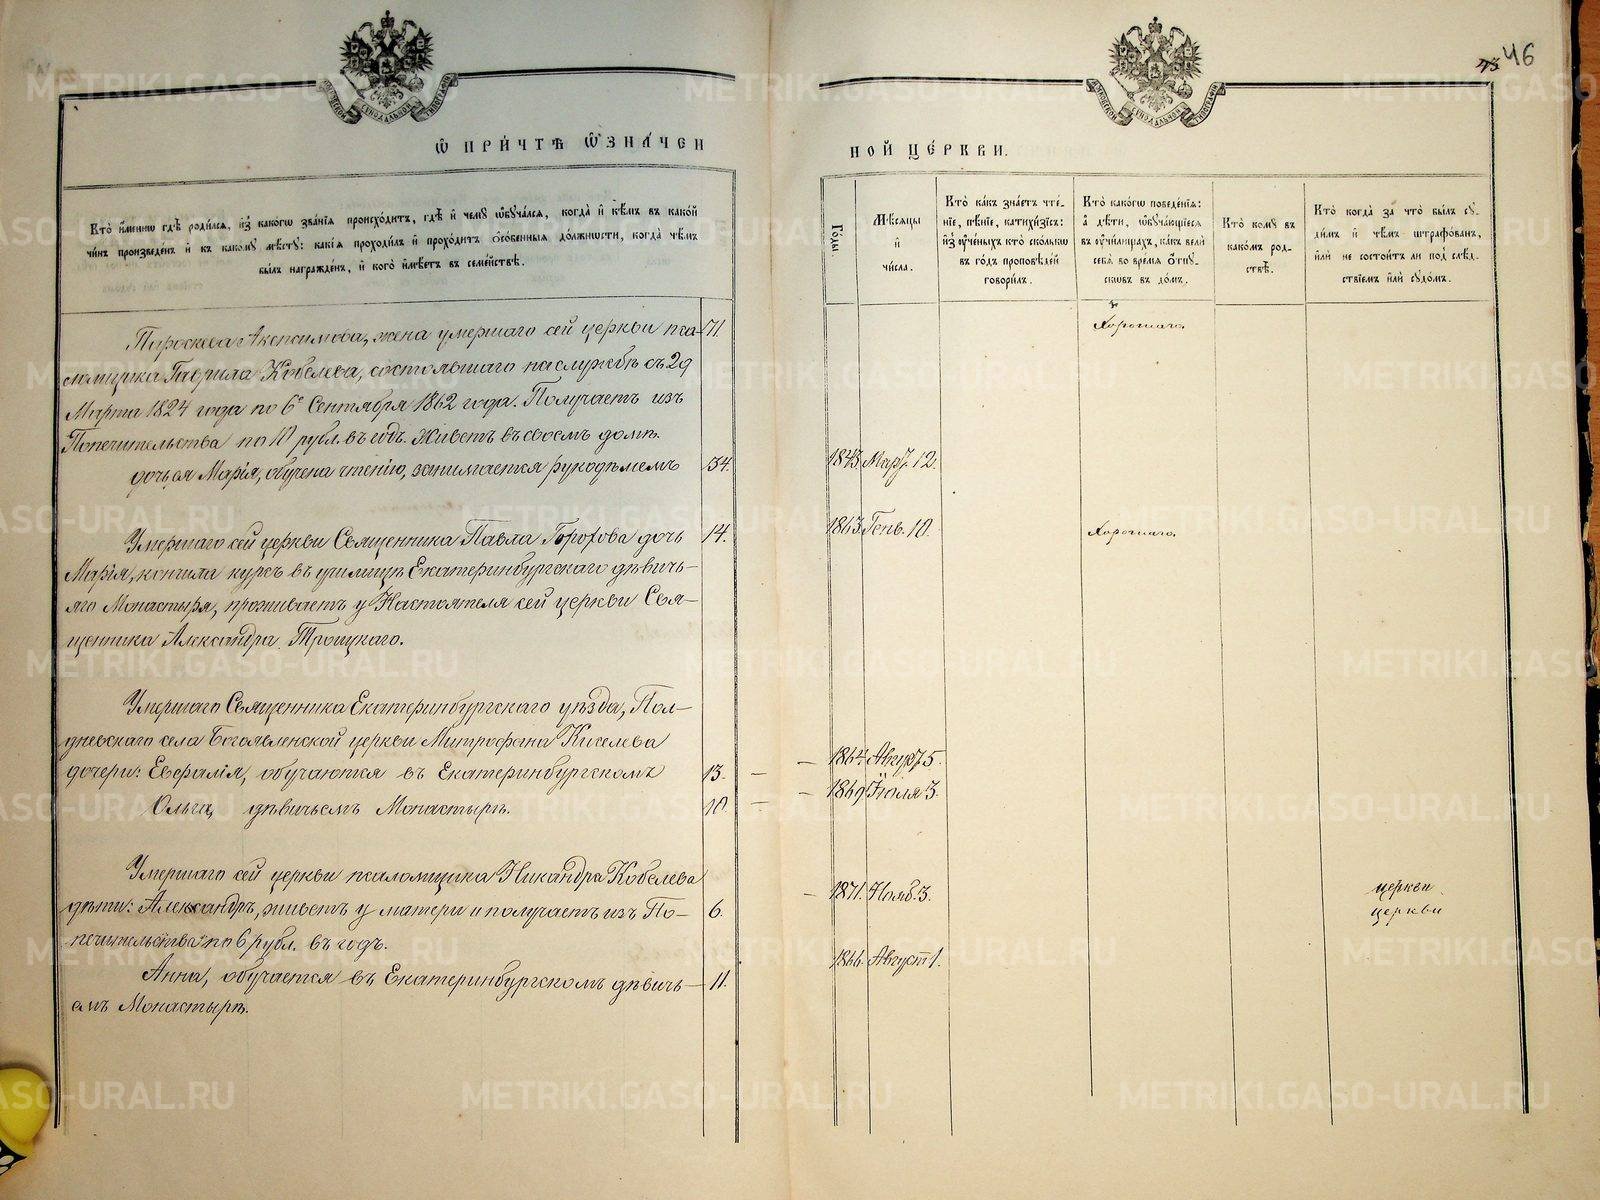 46
Ѡ ПРИ́ЧТѢ Ѡ҆ЗНА́ЧЕН
НОЙ ЦЕ́РКВИ.
Кто̀ и҆́менно гдѣ̀ роди́лся, и҆з̾ како́гѡ зва́нїѧ происхо́дитъ, гдѣ̀ и҆ чемꙋ̀ ѡ҆бꙋча́лся, когда̀ и҆ кѣ́мъ въ како́й
чи́нъ произведе́нъ и҆ къ како́мꙋ мѣ́стꙋ: какі́ѧ проходи́лъ и҆ прохо́дитъ ѻ҆со́бенныѧ до́лжности, когда̀ чѣ́мъ
бы́лъ награжде́нъ, и҆ кого̀ и҆мѣ́етъ въ семе́йствѣ.
Го́ды.
Мѣ́сѧцы
и҆
чи́сла.
Кто̀ ка́къ зна́етъ чте́-
нїе, пѣ́нїе, катихи́зісъ:
и҆з̾ ᲂу҆че́ныхъ кто̀ ско́лькѡ
въ го́дъ про́повѣдей
говори́лъ.
Кто̀ како́гѡ поведе́нїѧ:
а҆ дѣ́ти, ѡ҆бꙋча́ющїесѧ
въ ᲂу҆чи́лищахъ, ка́къ велѝ
себѐ во вре́мѧ ѻ҆́тпꙋ-
скѡвъ въ до́мъ.
Кто̀ комꙋ̀ въ
како́мъ род-
ствѣ̀.
Кто̀ когда̀ за что̀ бы́лъ сꙋ-
ди́мъ и҆ чѣ́мъ штрафо́ванъ,
и҆лѝ не состои́тъ ли под̾ слѣ́д-
ствїемъ и҆лѝ сꙋдо́мъ.
Параскева Максимова, жена умершаго сей церкви пса- 71. Хорошаго.
ломщика Гаврила Кобелева, состоявшаго на службѣ съ 29
Марта 1824 года по 6е Сентября 1862 года. Получаетъ изъ
Попечительства по 10 рубл. въ годъ. Живетъ въ своемъ домѣ.
дочь ея Марія, обучена чтенію, занимается рукодѣльемъ 34. 1843. Март. 12.
Умершаго сей церкви Священника Павла дочь 14. 1863. Генв. 10. Хорошаго.
Марія, кончила курсъ въ училищѣ Екатеринбургскаго дѣвичь-
яго Монастыря, проживаетъ у Настоятеля сей церкви Свя-
щенника Александра Троицкаго.
Умершаго Священника Екатеринбургскаго уѣзда, Пол-
дневскаго села Богоявленской церкви Митрофана Киселева
дочери: обучаются въ Екатеринбургскомъ 13. — — 1864. Август. 5.
Ольга, дѣвичьемъ Монастырѣ. 10. — — 1869. Іюля 3.
Умершаго сей церкви псаломщика Никандра Кобелева
дѣти: Александръ, живетъ у матери и получаетъ изъ По- 6. — 1871. Нояб. 3. церкви
печительства по 6 рубл. въ годъ. церкви
Анна, обучается въ Екатеринбургскомъ дѣвичь- 11. 1866. Август 1.
емъ Монастырѣ.
METRIKI.GASO-URAL.RU